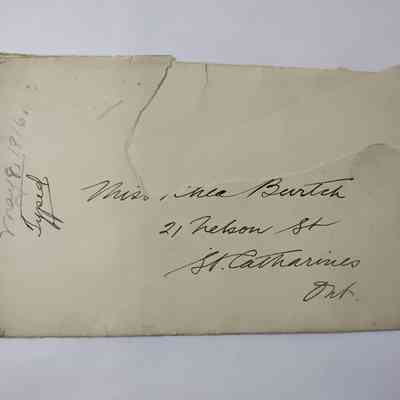 May 8, 1916.
Typed
Miss Mea Burtch
21 Nelson St
St. Catharines
Ont.